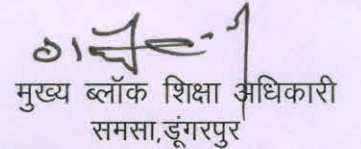 मुख्य ब्लॉक शिक्षा अधिकारी
समसा,डूंगरपुर